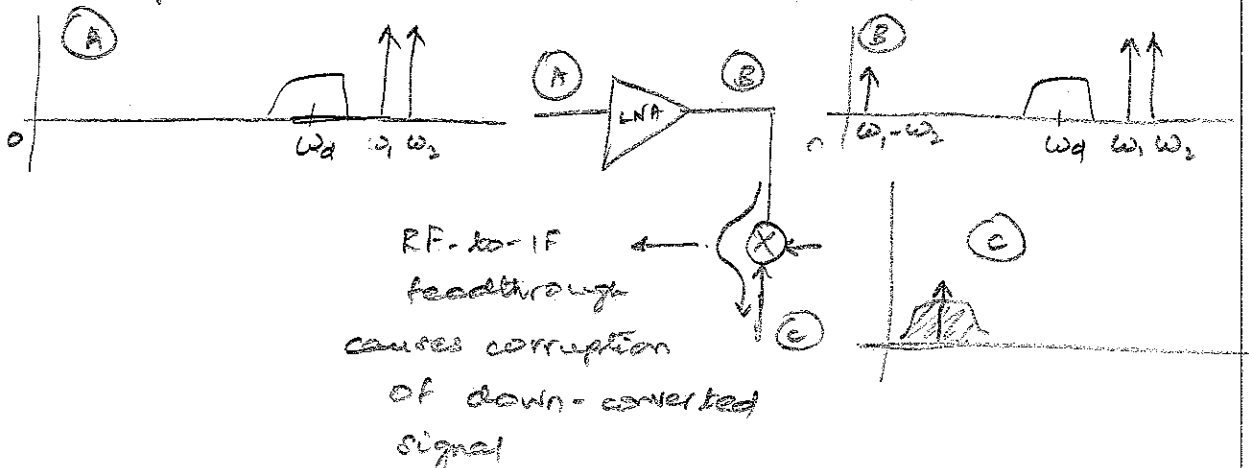 A
0
ωd ω1 ω2
A
LNA
B
B
0 ω1-ω2 ωd ω1 ω2
RF-to-IF
feedthrough
causes corruption
of down-converted
signal
X
C
C